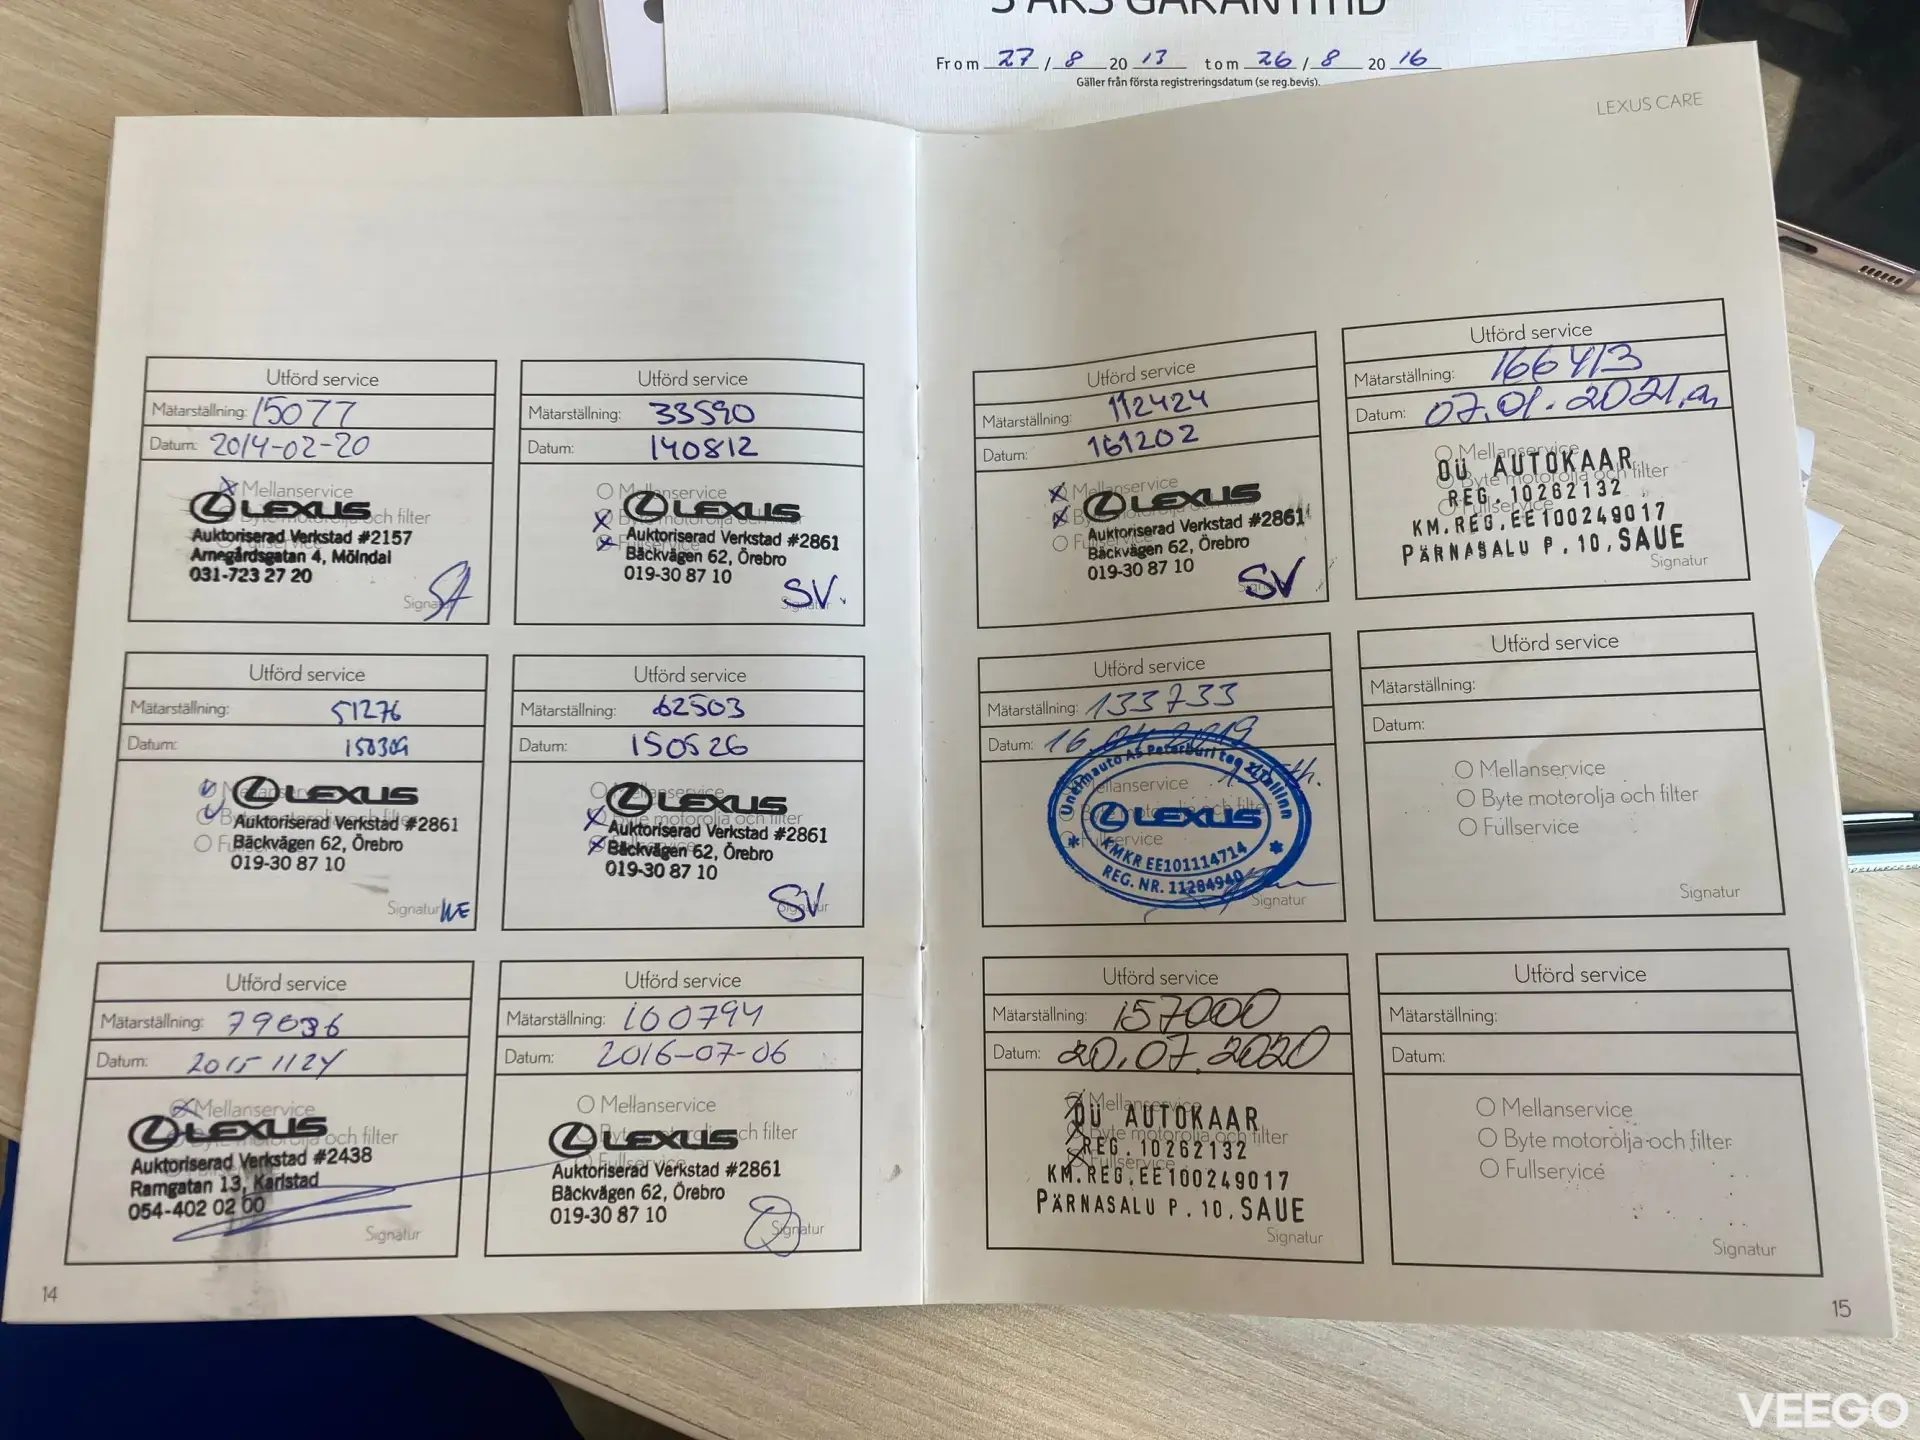 3 ÅRS GARANTITID
From 27 / 8 20 13 tom 26 / 8 20 16
Gäller från första registreringsdatum (se reg.bevis).
LEXUS CARE
Utförd service
Mätarställning: 15077
Datum: 2014-02-20
Mellanservice
Byte motorolja och filter
LEXUS
Auktoriserad Verkstad #2157
Arnegårdsgatan 4, Mölndal
031-723 27 20
Signatur
Utförd service
Mätarställning: 33590
Datum: 140812
Mellanservice
Byte motorolja och filter
Fullservice
LEXUS
Auktoriserad Verkstad #2861
Bäckvägen 62, Örebro
019-30 87 10
Signatur SV.
Utförd service
Mätarställning: 51276
Datum: 150309
Mellanservice
Byte motorolja och filter
Fullservice
LEXUS
Auktoriserad Verkstad #2861
Bäckvägen 62, Örebro
019-30 87 10
Signatur
Utförd service
Mätarställning: 62503
Datum: 150526
Mellanservice
Byte motorolja och filter
LEXUS
Auktoriserad Verkstad #2861
Bäckvägen 62, Örebro
019-30 87 10
Signatur SV
Utförd service
Mätarställning: 79036
Datum: 2015 1124
Mellanservice
Byte motorolja och filter
LEXUS
Auktoriserad Verkstad #2438
Ramgatan 13, Karlstad
054-402 02 00
Signatur
Utförd service
Mätarställning: 100794
Datum: 2016-07-06
Mellanservice
Byte motorolja och filter
Fullservice
LEXUS
Auktoriserad Verkstad #2861
Bäckvägen 62, Örebro
019-30 87 10
Signatur
14
Utförd service
Mätarställning: 112424
Datum: 161202
Mellanservice
Byte motorolja och filter
Fullservice
LEXUS
Auktoriserad Verkstad #2861
Bäckvägen 62, Örebro
019-30 87 10
Signatur SV
Utförd service
Mätarställning: 166413
Datum: 07.01.2021.a
Mellanservice
Byte motorolja och filter
Fullservice
OÜ AUTOKAAR
REG. 10262132
KM.REG.EE100249017
PÄRNASALU P. 10. SAUE
Signatur
Utförd service
Mätarställning: 133733
Datum: 16.04.2019
Mellanservice
Byte motorolja och filter
Fullservice
Unitrnauto AS Peterburi tee Tallinn
LEXUS
KMKR EE101114714
REG. NR. 11284940
Signatur
Utförd service
Mätarställning:
Datum:
Mellanservice
Byte motorolja och filter
Fullservice
Signatur
Utförd service
Mätarställning: 157000
Datum: 20.07.2020
Mellanservice
Byte motorolja och filter
Fullservice
OÜ AUTOKAAR
REG. 10262132
KM.REG.EE100249017
PÄRNASALU P. 10. SAUE
Signatur
Utförd service
Mätarställning:
Datum:
Mellanservice
Byte motorolja och filter
Fullservice
Signatur
15
VEEGO